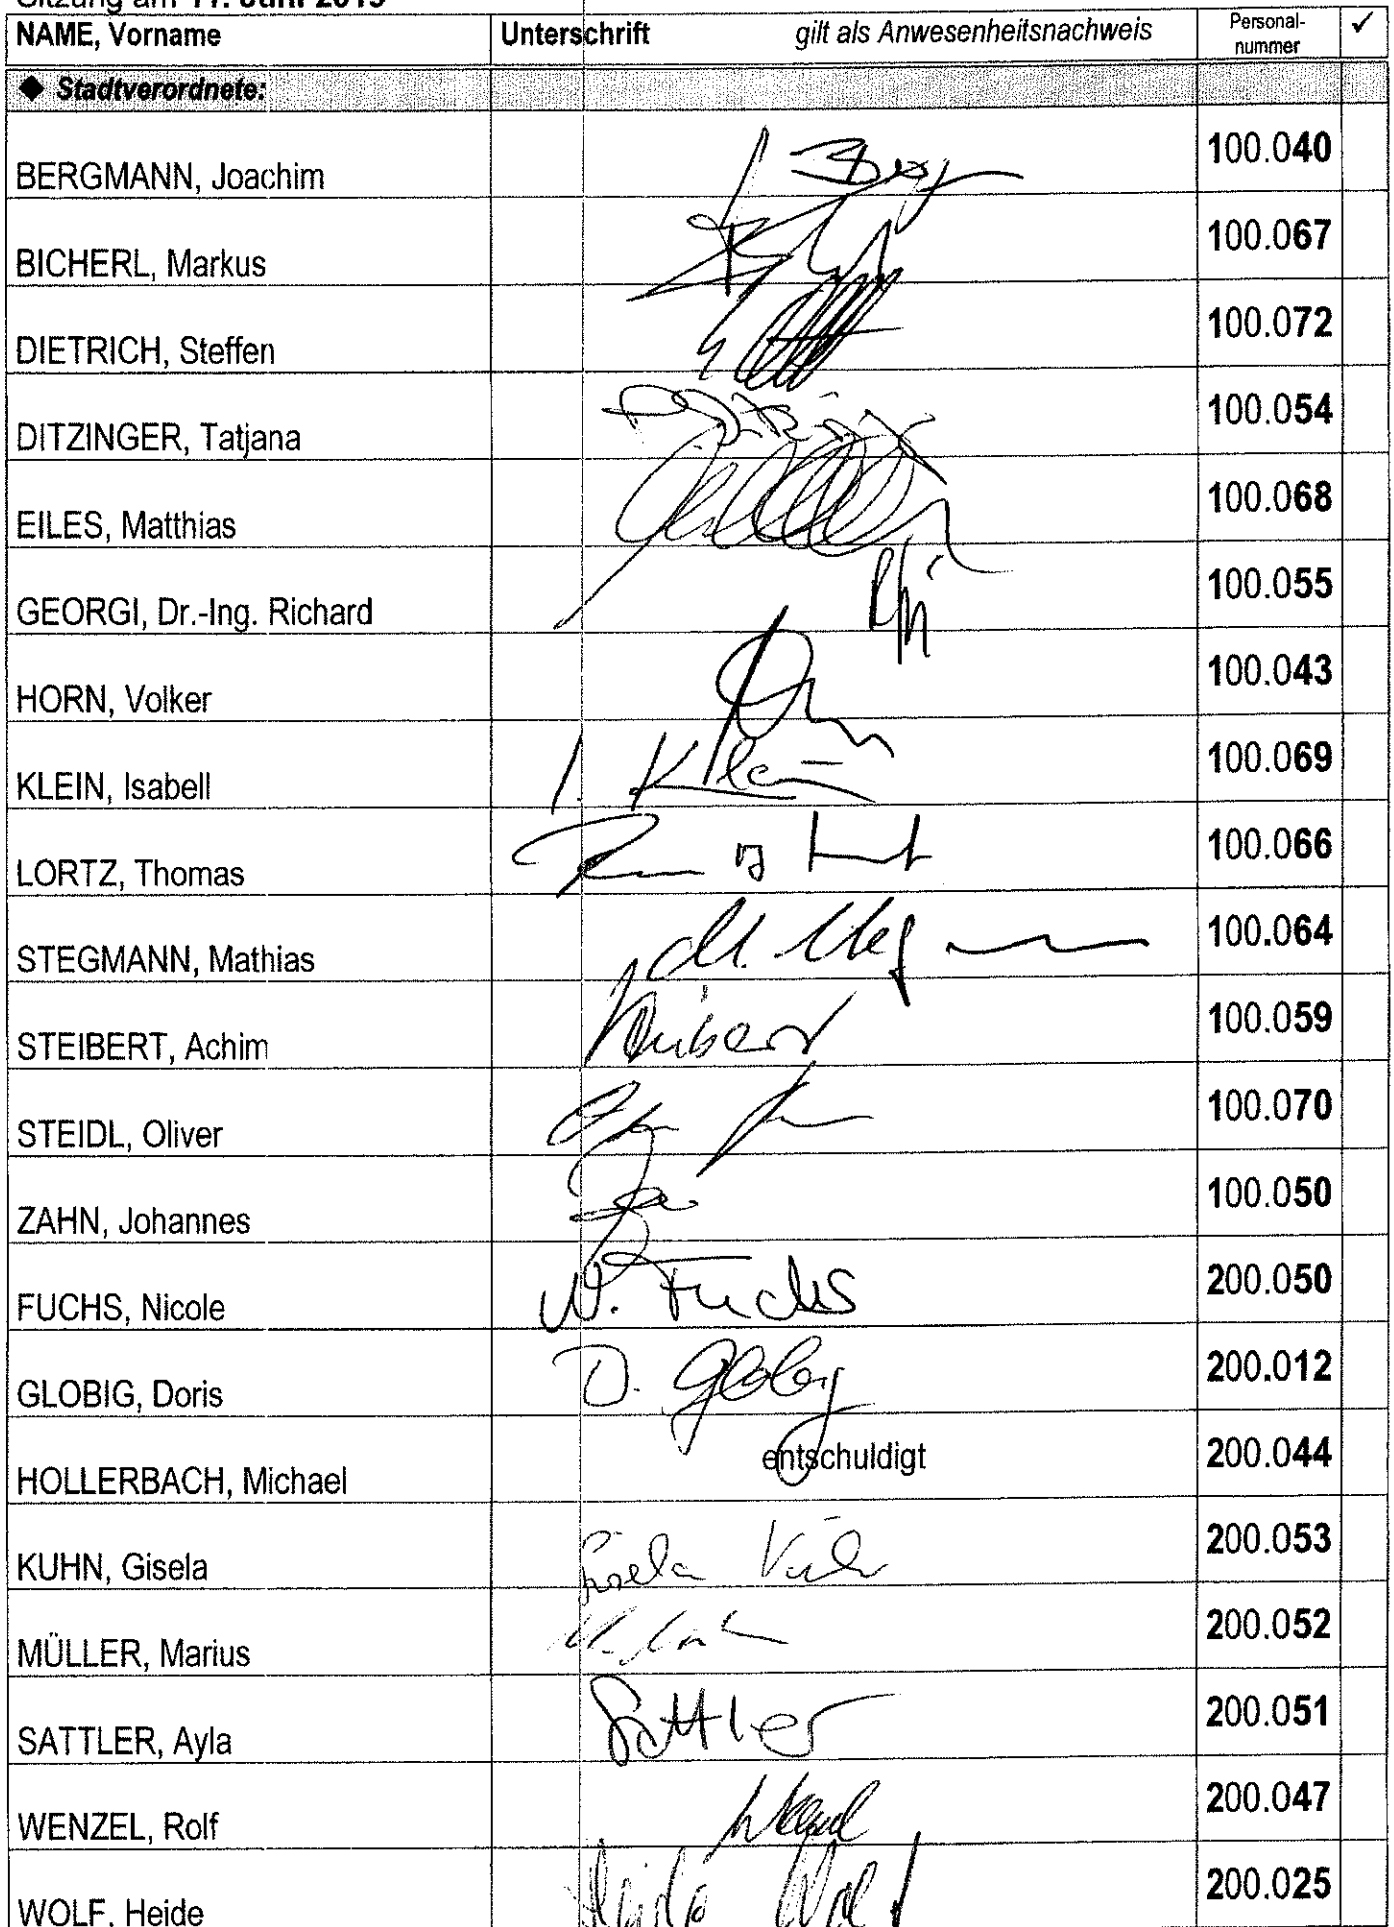 Sitzung am 17. Juni 2015
NAME, Vorname Unterschrift gilt als Anwesenheitsnachweis Personal-nummer ✓
◆ Stadtverordnete:
BERGMANN, Joachim 100.040
BICHERL, Markus 100.067
DIETRICH, Steffen 100.072
DITZINGER, Tatjana 100.054
EILES, Matthias 100.068
GEORGI, Dr.-Ing. Richard 100.055
HORN, Volker 100.043
KLEIN, Isabell I. Klein 100.069
LORTZ, Thomas 100.066
STEGMANN, Mathias 100.064
STEIBERT, Achim 100.059
STEIDL, Oliver 100.070
ZAHN, Johannes 100.050
FUCHS, Nicole N. Fuchs 200.050
GLOBIG, Doris D. Globig 200.012
HOLLERBACH, Michael entschuldigt 200.044
KUHN, Gisela Gisela Kuhn 200.053
MÜLLER, Marius 200.052
SATTLER, Ayla Sattler 200.051
WENZEL, Rolf Wenzel 200.047
WOLF, Heide Heide Wolf 200.025